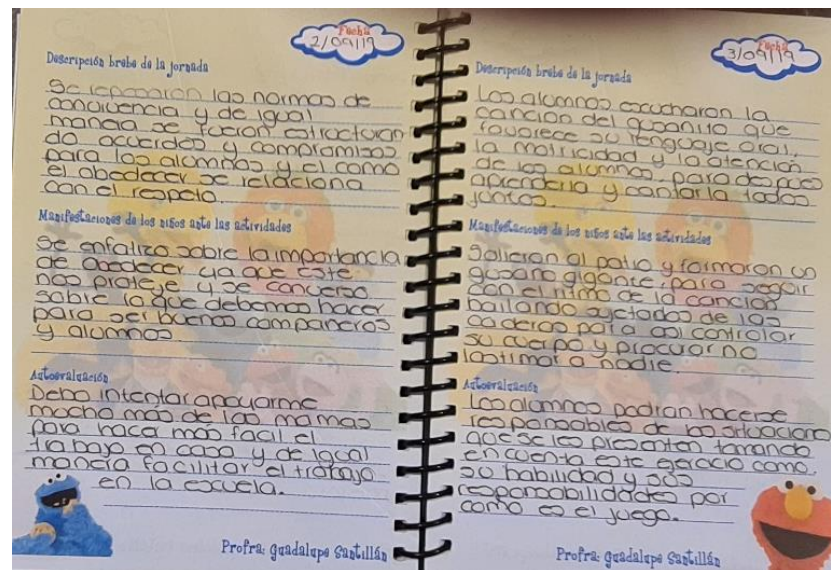 Fecha
2/09/19
Descripción brebe de la jornada
Se repasaron las normas de
convivencia y de igual
manera se fueron estructuran
do acuerdos y compromisos
para los alumnos y el como
el obedecer se relaciona
con el respeto.
Manifestaciones de los niños ante las actividades
Se enfatizo sobre la importancia
de obedecer ya que este
nos proteje y se converso
sobre lo que debemos hacer
para ser buenos compañeros
y alumnos.
Autoevaluación
Debo intentar apoyarme
mucho más de las mamas
para hacer más facil el
trabajo en casa y de igual
manera facilitar el trabajo
en la escuela.
Profra: Guadalupe Santillán
Fecha
3/09/19
Descripción brebe de la jornada
Los alumnos escucharon la
canción del gusanito que
favorece su lenguaje oral,
la motricidad y la atención
de los alumnos, para después
aprenderla y cantarla todos
juntos.
Manifestaciones de los niños ante las actividades
Salieron al patio y formaron un
gusano gigante, para seguir
con el ritmo de la canción
bailando sujetados de las
caderas para así controlar
su cuerpo y procurar no
lastimar a nadie.
Autoevaluación
Los alumnos podran hacerse
responsables de las
que se les presenten tomando
en cuenta este ejercicio como
su habilidad y sus
responsabilidades por
como es el juego.
Profra: Guadalupe Santillán